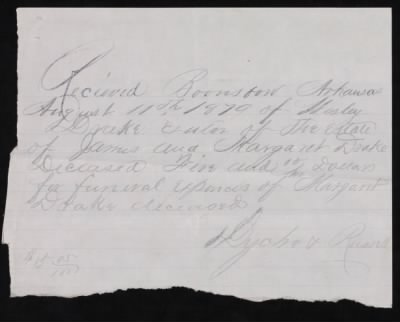 Recieved Boonsboro Arkansas
August 11th 1879 of Wesley
Drake Exutor of The Estate
of James and Margaret Drake
Diceased Five and 05/100 Dollars
for funeral expences of Margaret
Drake deceased
$5 05/100